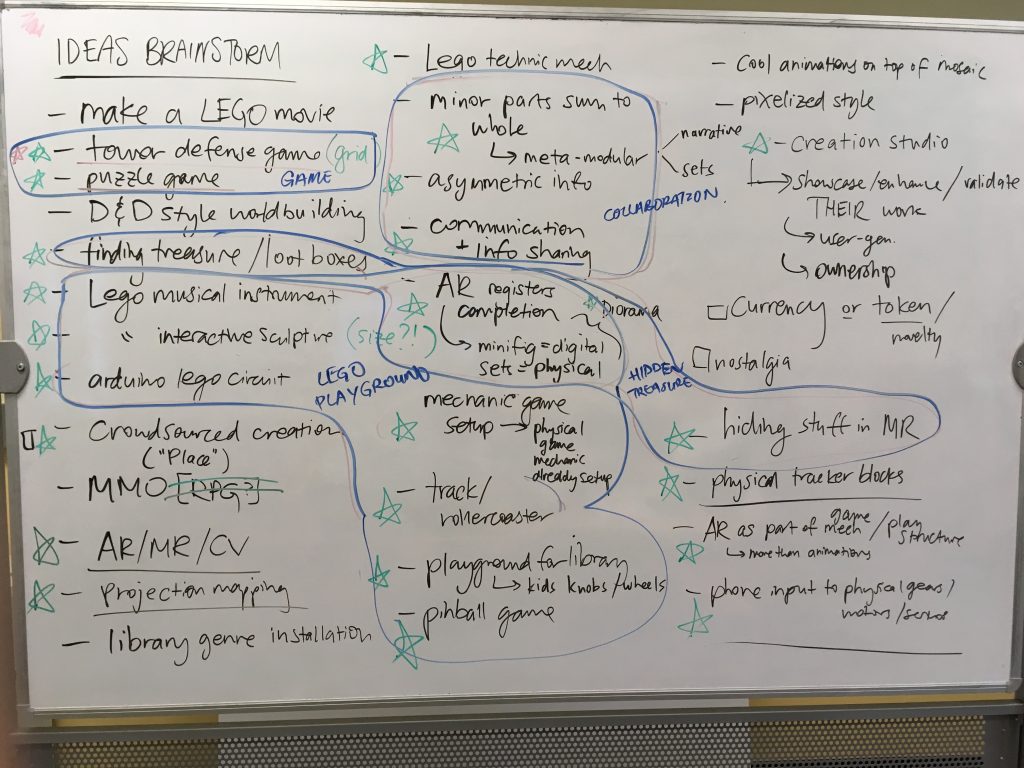 IDEAS BRAINSTORM
- make a LEGO movie
- tower defense game (grid)
- puzzle game
GAME
- D&D style worldbuilding
- finding treasure/loot boxes
- Lego musical instrument
- " interactive sculptive (size?!)
- arduino lego circuit
LEGO
PLAYGROUND
- Crowdsourced creation
("Place")
- MMO [RPG?]
- AR/MR/CV
- projection mapping
- library genre installation
- Lego technic mech
- minor parts sum to
whole
↳ meta-modular
- asymmetric info
- communication
+ info sharing
narrative
sets
COLLABORATION
- AR registers
completion
Diorama
↳ minifig = digital
sets = physical
mechanic game
setup → physical
game
mechanic
already setup
- track/
rollercoaster
- playground for library
↳ kids knobs/wheels
- pinball game
HIDDEN
TREASURE
- Cool animations on top of mosaic
- pixelized style
- Creation studio
↳ showcase/enhance/validate
THEIR work
↳ user-gen.
↳ ownership
Currency or token/
novelty
nostalgia
- hiding stuff in MR
- physical tracker blocks
- AR as part of game mech/play structure
↳ more than animations
- phone input to physical gears/
motors/sensor